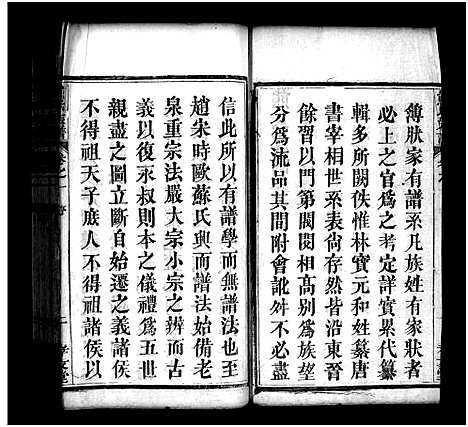 簿狀家有譜系凡族姓有家狀者
必上之官為之考定詳實累代纂
輯多所闕佚惟林寶元和姓纂唐
書宰相世系表尙存然皆沿東晉
餘習以門第閥閱相高別為族望
分爲流品其間附會訛舛不必盡
信此所以有譜學而無譜法也至
趙宋時歐蘇氏興而譜法始備老
泉重宗法嚴大宗小宗之辨而古
義以復永叔則本之儀禮為五世
親盡之圖立斷自始遷之義諸侯
不得祖天子庶人不得祖諸侯以